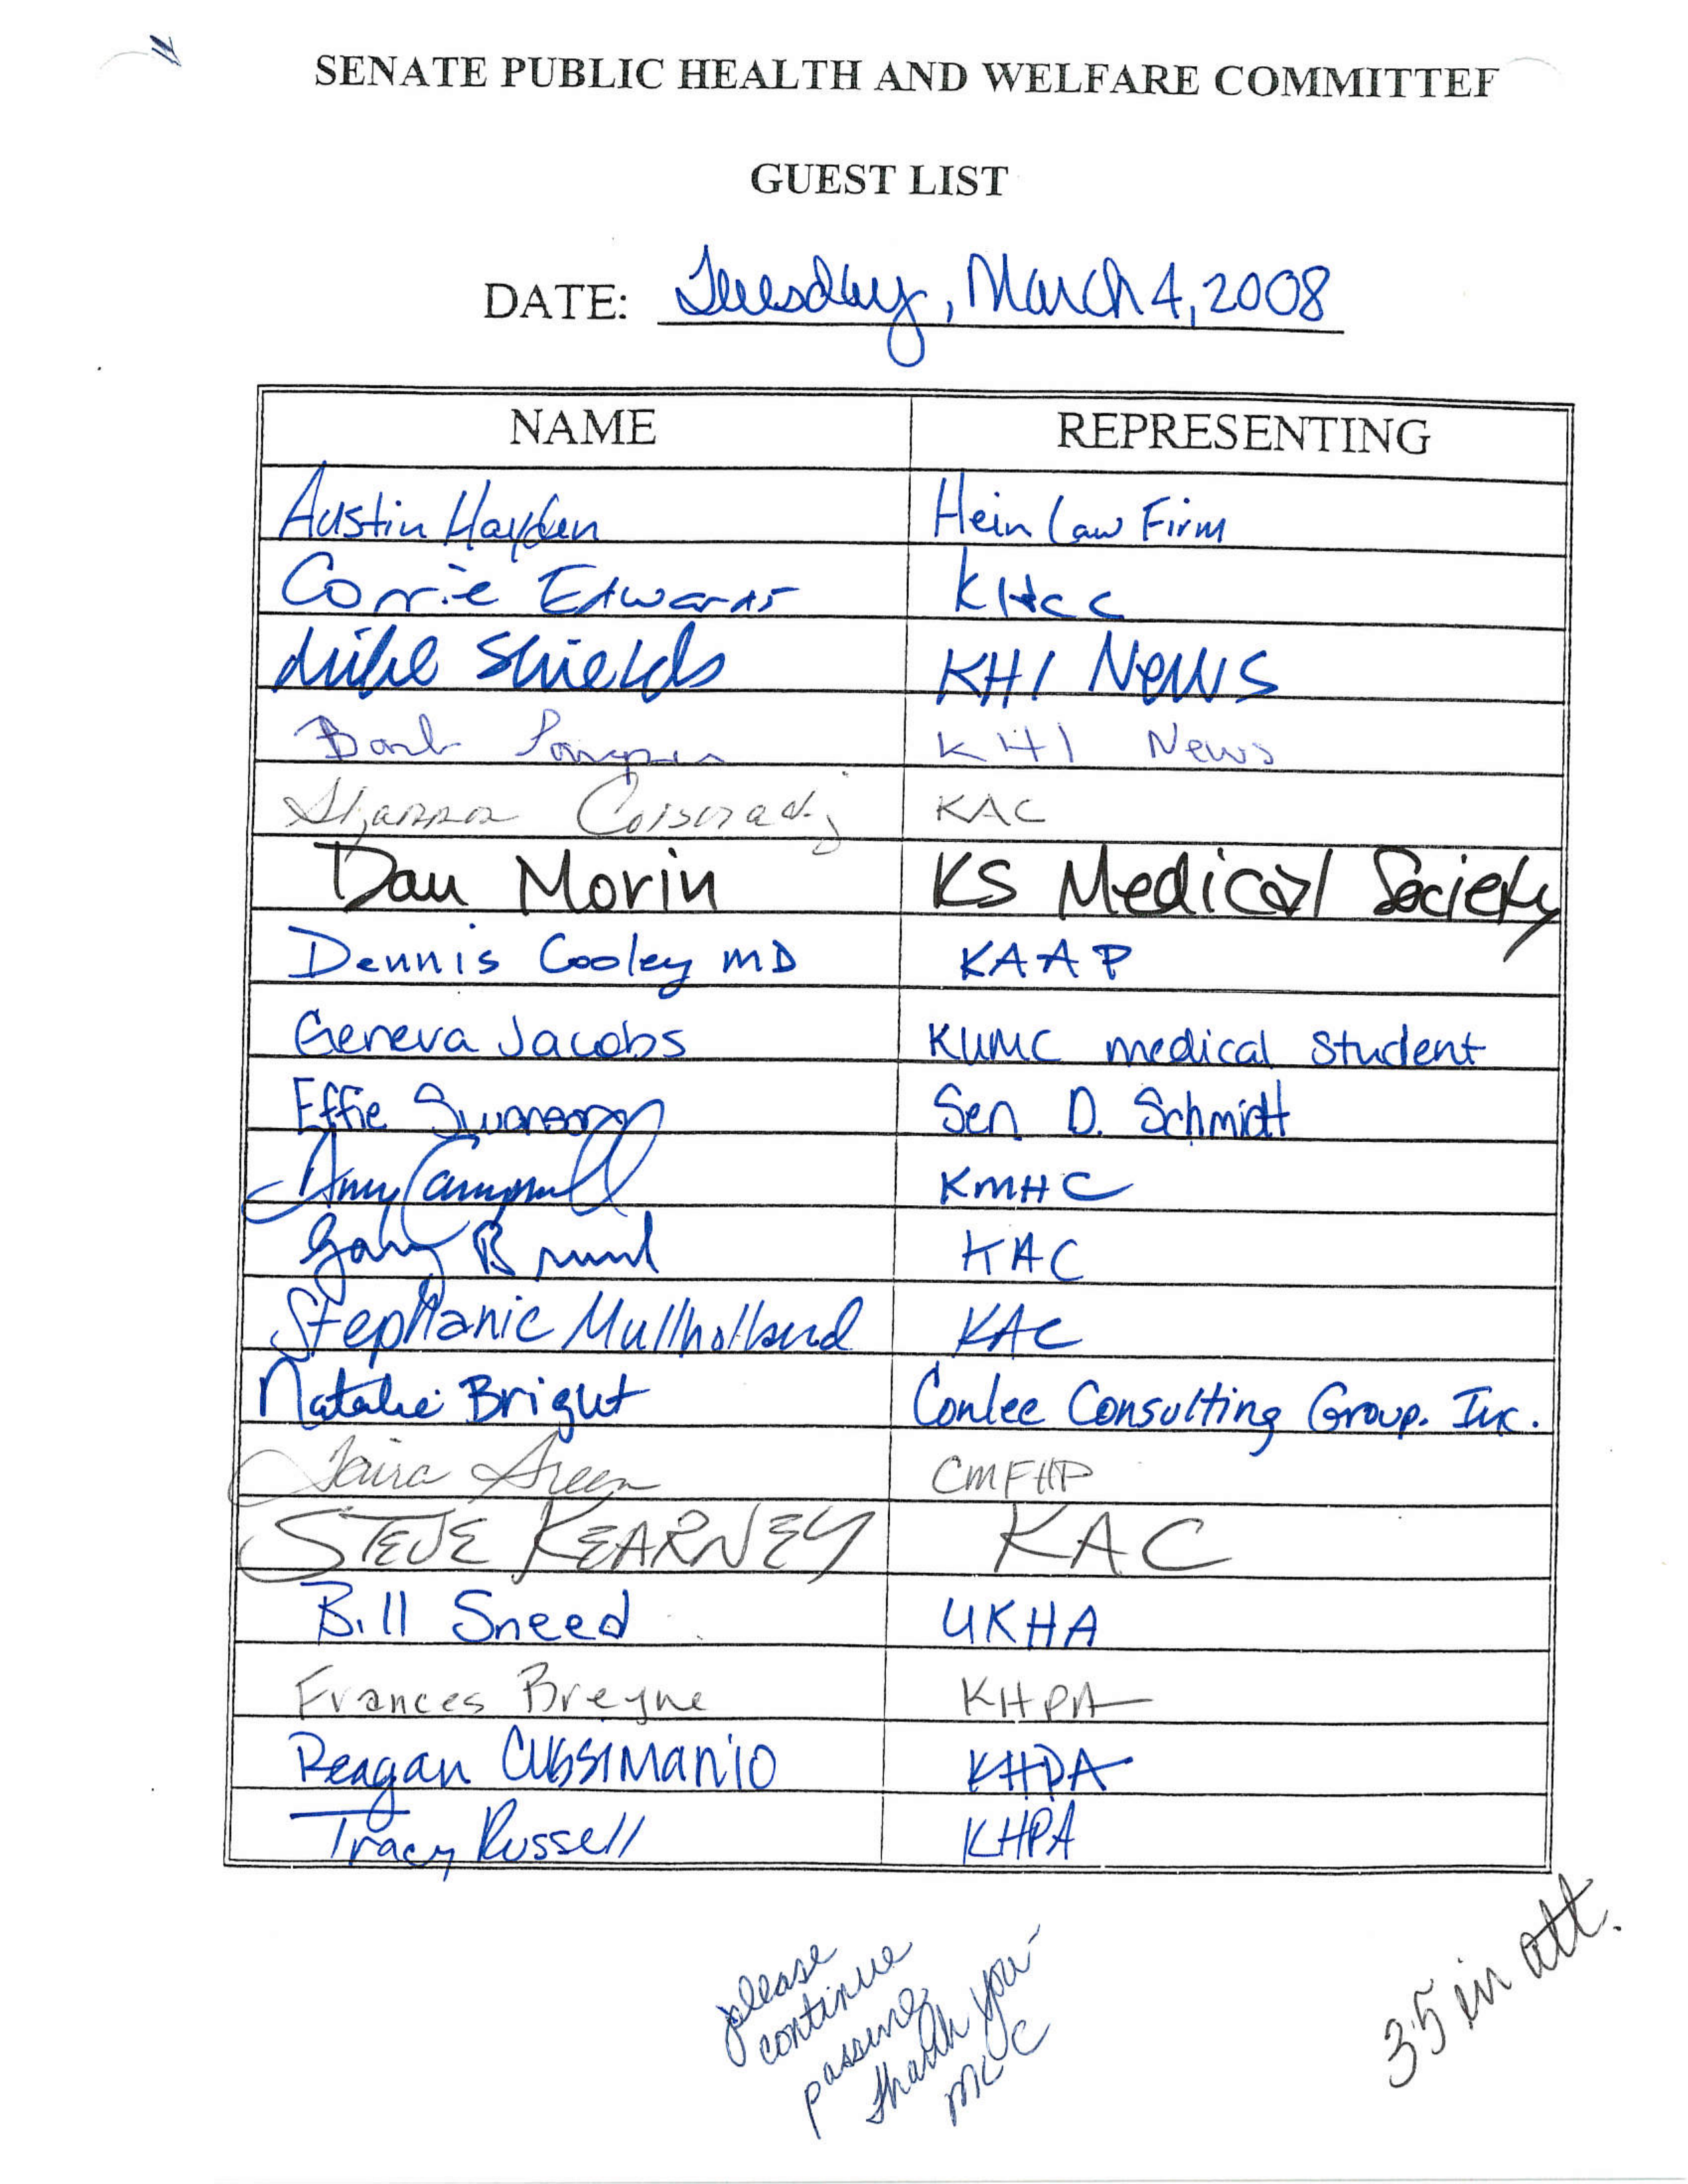 SENATE PUBLIC HEALTH AND WELFARE COMMITTEE
GUEST LIST
DATE: Tuesday, March 4, 2008
NAME REPRESENTING
Austin Hayden Hein Law Firm
Corrie Edwards KHCC
Mike Shields KHI NEWS
Barb KHI News
Shannon KAC
Dan Morin KS Medical Society
Dennis Cooley MD KAAP
Geneva Jacobs KUMC medical student
Effie Swanson Sen D. Schmidt
Amy Campbell KMHC
Gary KAC
Stephanie Mullholland KAC
Natalie Bright Conlee Consulting Group. Inc.
Green CMFHP
STEVE KEARNEY KAC
Bill Sneed UKHA
Frances Breyne KHPA
Reagan Cussimanio KHPA
Tracy Russell KHPA
please
continue
passing
thank you-
MCC
35 in att.